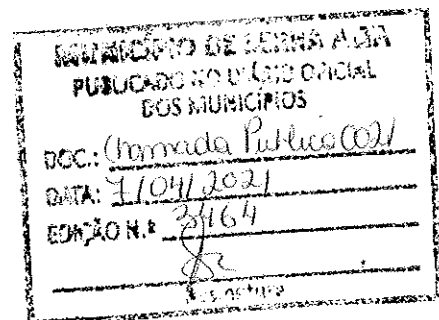 MUNICÍPIO DE SERRA ALTA
PUBLICADO NO DIÁRIO OFICIAL
DOS MUNICÍPIOS
DOC.: Chamada Publica 002/
DATA: 7/04/2021
EDIÇÃO N.º 3464
Assinatura